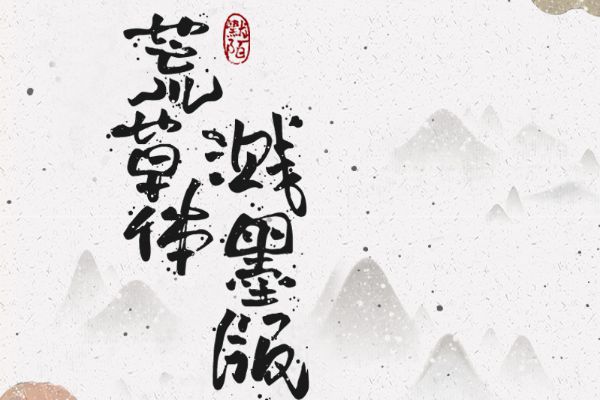 荒草体
溅墨版
默陌